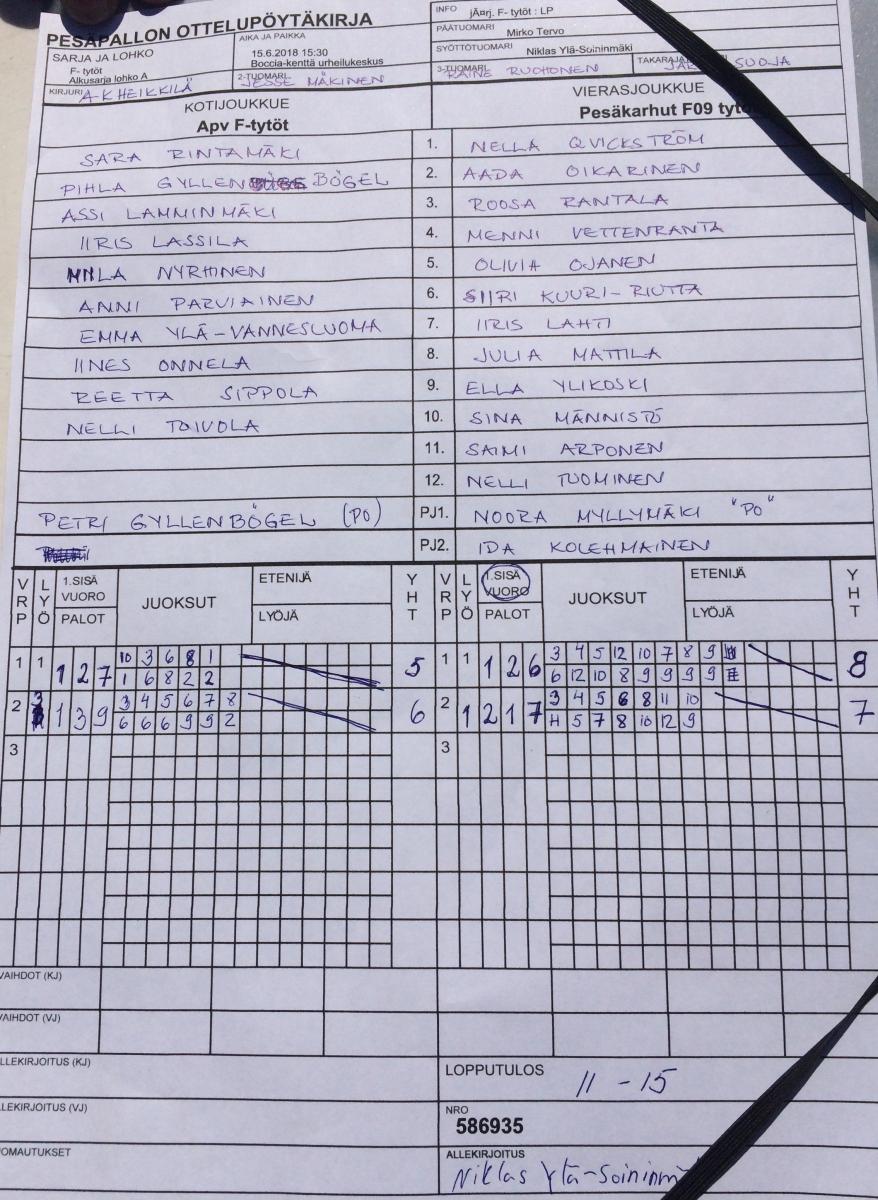 PESÄPALLON OTTELUPÖYTÄKIRJA
INFO jÃ¤rj. F- tytöt : LP
PÄÄTUOMARI Mirko Tervo
SYÖTTÖTUOMARI Niklas Ylä-Soininmäki
SARJA JA LOHKO
F- tytöt
Alkusarja lohko A
AIKA JA PAIKKA
15.6.2018 15:30
Boccia-kenttä urheilukeskus
KIRJURI A-K HEIKKILÄ
2-TUOMARI JESSE MÄKINEN
3-TUOMARI RAINE RUOHONEN
SUOJA
KOTIJOUKKUE
Apv F-tytöt
VIERASJOUKKUE
Pesäkarhut F09
SARA RINTAMÄKI 1. NELLA QVICKSTRÖM
PIHLA GYLLEN BÖGEL 2. AADA OIKARINEN
ASSI LAMMINMÄKI 3. ROOSA RANTALA
IIRIS LASSILA 4. MENNI VETTENRANTA
NYRHINEN 5. OLIVIA OJANEN
ANNI PARVIAINEN 6. SIIRI KUURI-RIUTTA
EMMA YLÄ-VANNESLUOMA 7. IIRIS LAHTI
IINES ONNELA 8. JULIA MATTILA
REETTA SIPPOLA 9. ELLA YLIKOSKI
NELLI TOIVOLA 10. SINA MÄNNISTÖ
11. SAIMI ARPONEN
12. NELLI TUOMINEN
PETRI GYLLENBÖGEL (PO) PJ1. NOORA MYLLYMÄKI "PO"
PJ2. IDA KOLEHMAINEN
VRP LYÖ 1.SISÄ VUORO PALOT JUOKSUT ETENIJÄ LYÖJÄ YHT VRP LYÖ 1.SISÄ VUORO PALOT JUOKSUT ETENIJÄ LYÖJÄ YHT
1 1 1 2 7 10 3 6 8 1 5 1 1 1 2 6 3 4 5 12 10 7 8 9 8
1 6 8 2 2 6 12 10 8 9 9 9 9
2 3 1 3 9 3 4 5 6 7 8 6 2 1 2 1 7 3 4 5 6 8 11 10 7
6 6 6 9 9 2 H 5 7 8 10 12 9
3 3
VAIHDOT (KJ)
VAIHDOT (VJ)
LLEKIRJOITUS (KJ)
LOPPUTULOS 11 - 15
LLEKIRJOITUS (VJ)
NRO
586935
OMAUTUKSET
ALLEKIRJOITUS
Niklas Ylä-Soininm